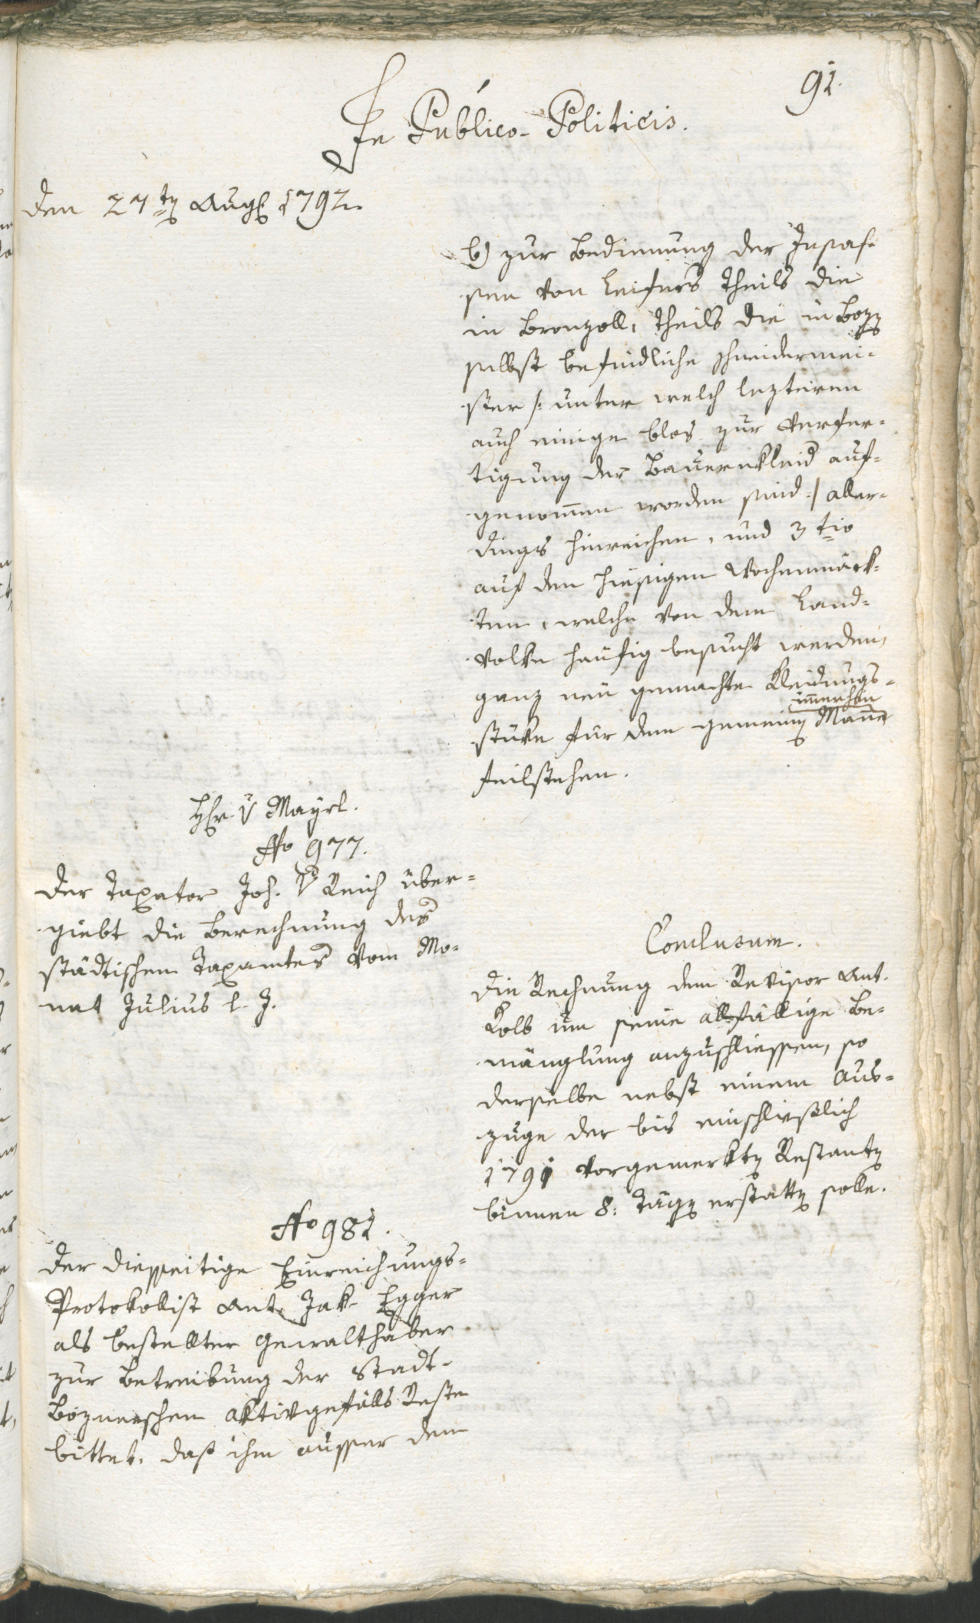 91.
In Publico-Politicis.
den 27ten Augt 1792.
b) zur Bedienung der Insas-
sen von Leifers theils die
in Bronzoll, theils die in Bozen
selbst befindliche Schneidermei-
ster /: unter welch lezteren
auch einige blos zur Verfer-
tigung der Bauernkleid auf-
genommen worden sind :/ aller-
dings hinreichen, und 3tio
auf den hiesigen Wochenmärk-
ten, welche von dem Land-
volke häufig besucht werden,
ganz neu gemachte Kleidungs-
immerhin
stüke für den gemeinen Mann
feilstehen.
Hr. v Mayrl.
No 977.
Der Taxator Joh. v Reich über-
giebt die Berechnung des
städtischen Taxamtes vom Mo-
nat Julius l. J.
Conclusum.
Die Rechnung dem Revisor Ant.
Kolb um seine allfällige Be-
mänglung anzuschliessen, so
derselbe nebst einem Aus-
zuge der bis einschließlich
1791 vorgemerkten Restanten
binnen 8. Tägen erstatten solle.
No 981.
Der diesseitige Einreichungs-
Protokollist Ant. Jak. Egger
als bestellter Gewalthaber
zur Betreibung der Stadt-
Boznerschen Aktivgefälls Reste
bittet, daß ihm ausser dem